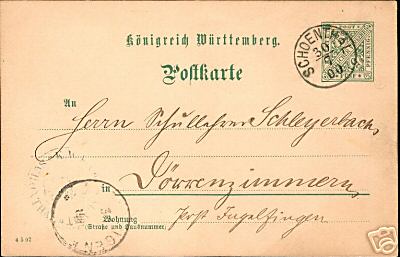 Königreich Württemberg.
Postkarte
SCHOENTHAL
30
PFENNIG
An
Herrn Schullehrer Schleyerbach,
in
Dörrenzimmern,
Wohnung
(Straße und Hausnummer)
Post Ingelfingen
4 5 97